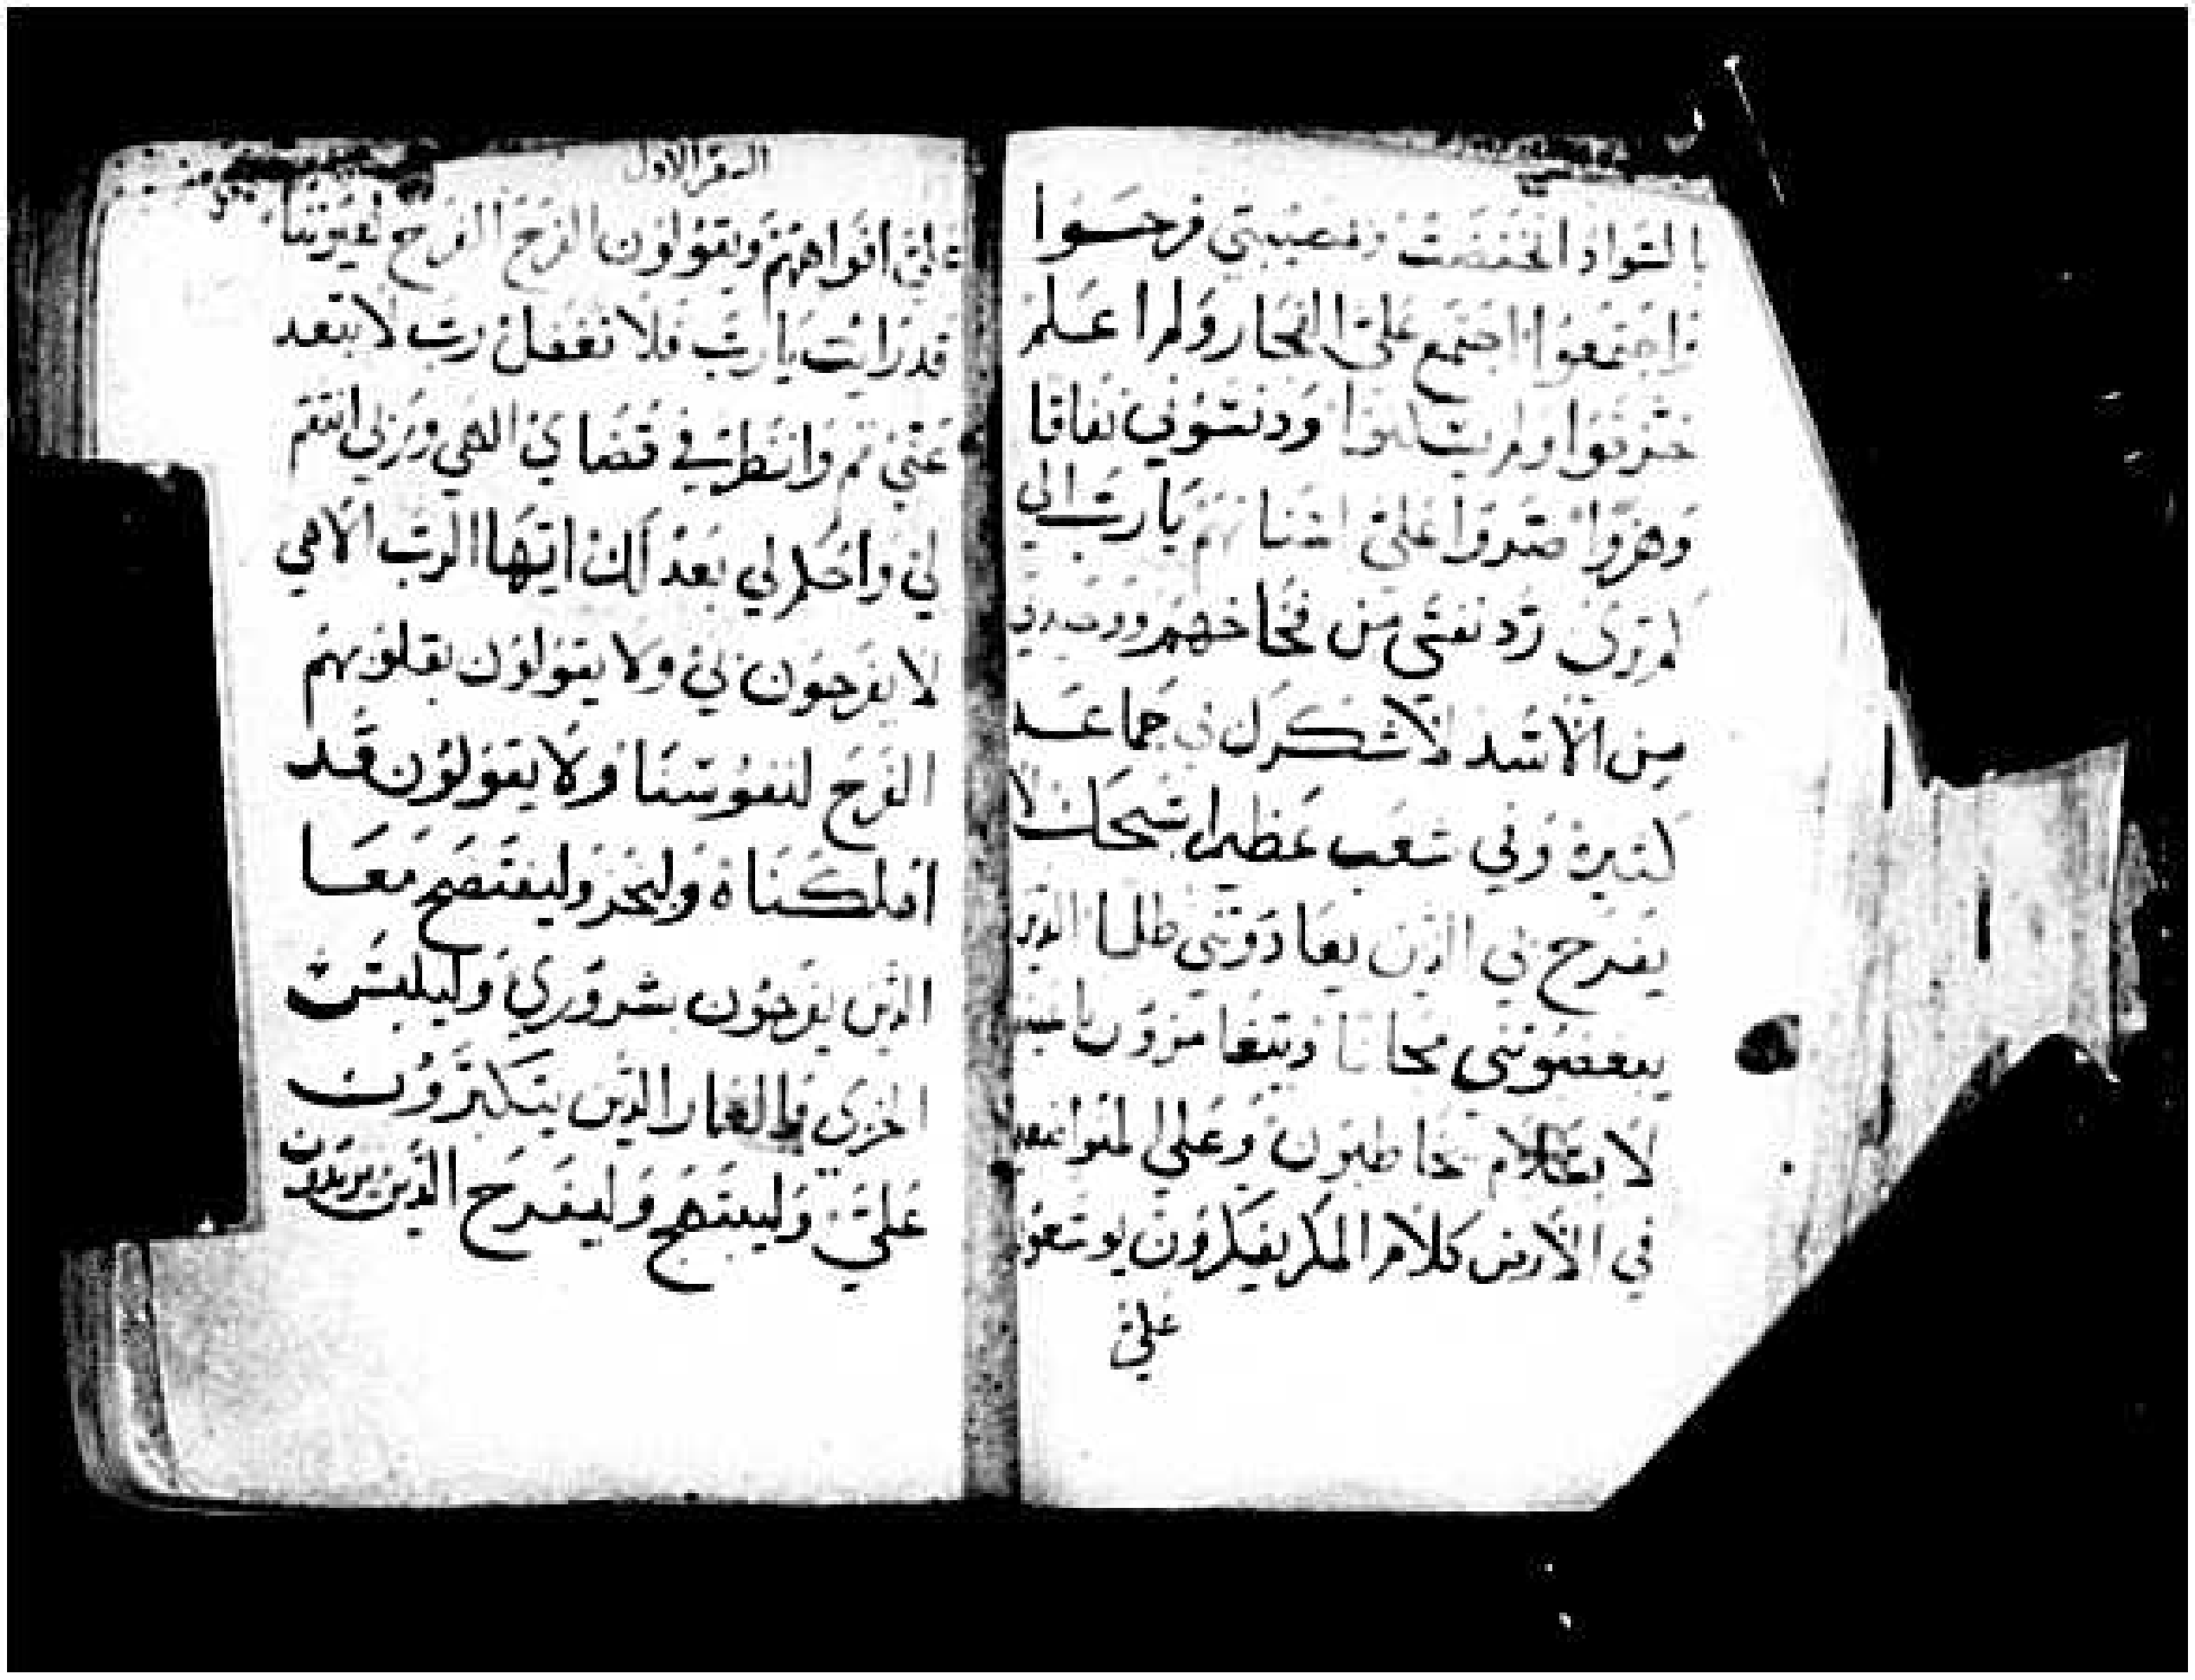 بالسواد انخفضت وبمصيبتي فرحوا
واجتمعوا اجتمع على الفجار ولم اعلم
ولم ودنسوني نفاقا
وهزوا صروا على يارب الى
رد نفسى من فخاخهم
من الاسد لاشكرك في جماعة
كثيرة وفي شعب عظيم اسبحك لا
يفرح بي الذين يعادونني ظلما الذين
يبغضونني مجانا ويتغامزون
لان بالسلام يخاطبون وعلى
في الارض كلام المكر يفكرون يوسعون
على
السفر الاول
على افواههم ويقولون الفرح الفرح لعيوننا
قد رايت يارب فلا تغفل رب لا تبعد
عني قم وانظر في قضاي الهي وربي انتقم
لي واحكم لي بعدلك ايها الرب الاهي
لا يفرحون بي ولا يقولون بقلوبهم
الفرح لنفوسنا ولا يقولون قد
اهلكناه وليخز وليفتضح معا
الذين يفرحون بشروري وليلبس
الخزى والعار الذين يتكبرون
علي وليبتهج وليفرح الذين يريدون